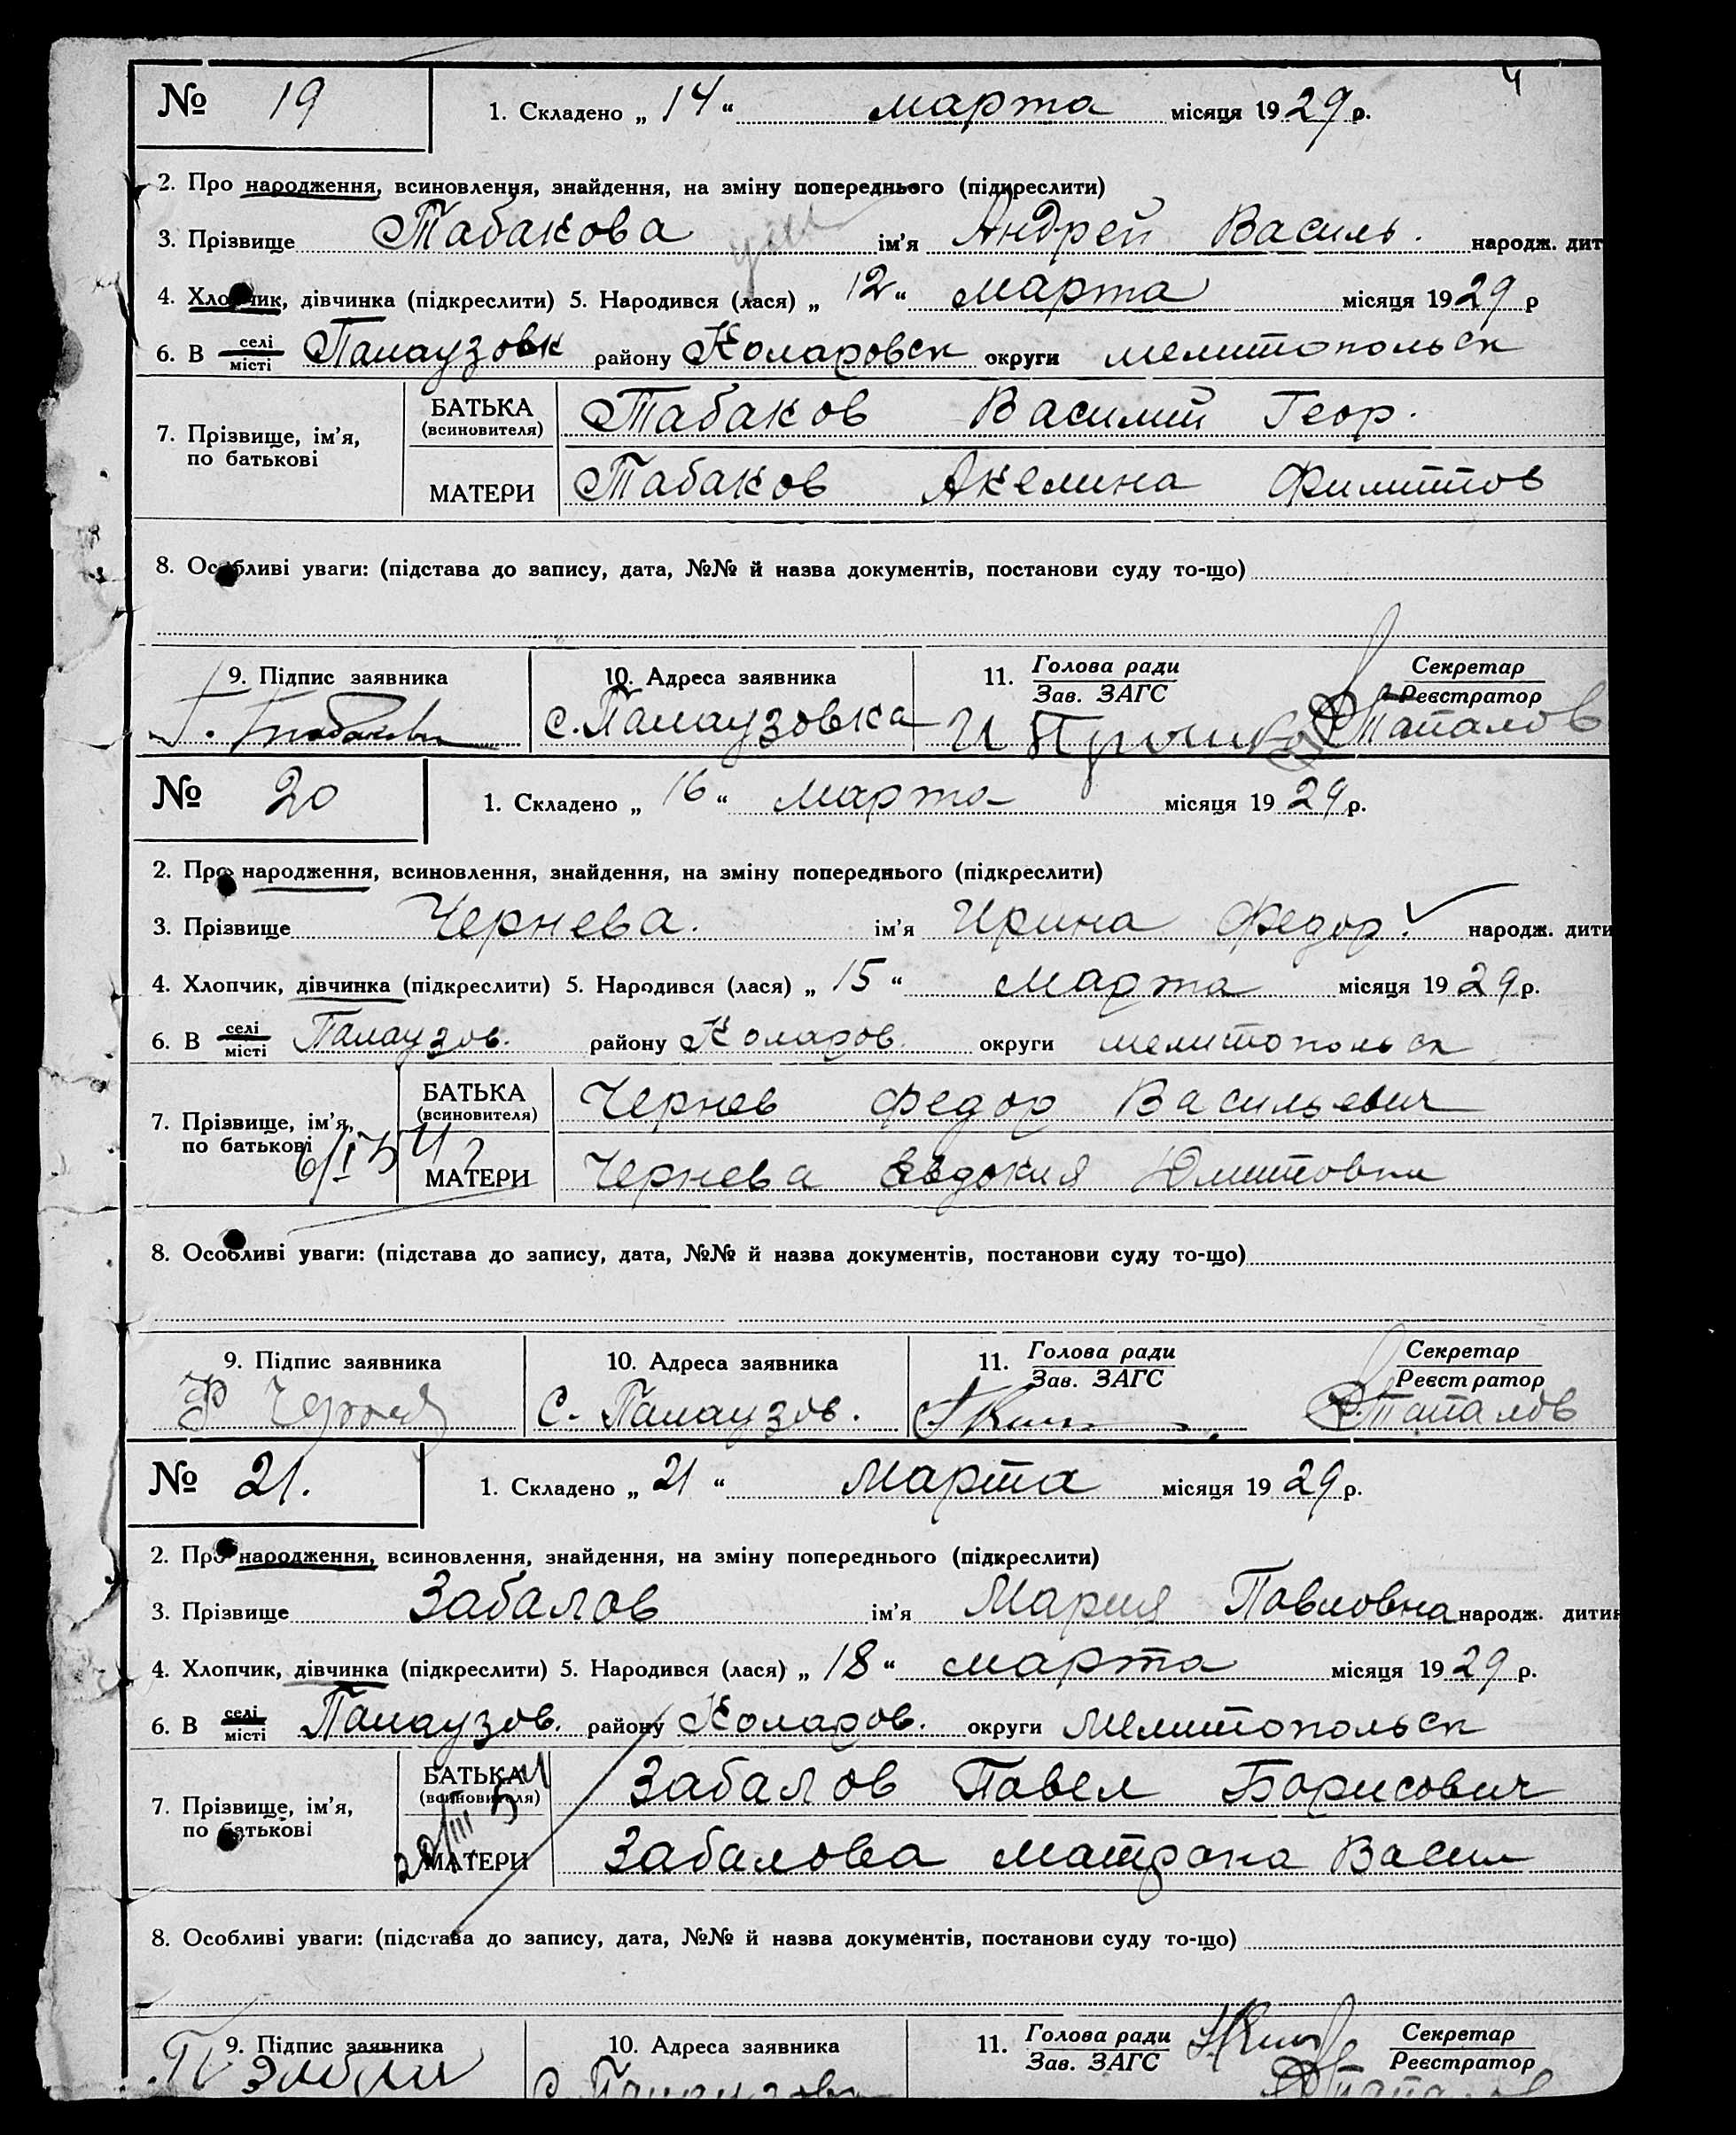 4
№ 19 1. Складено „ 14 “ марта місяця 1929 р.
2. Про народження, всиновлення, знайдення, на зміну попереднього (підкреслити)
3. Прізвище Табакова ім’я Андрей Василь. народж. дит
4. Хлопчик, дівчинка (підкреслити) 5. Народився (лася) „ 12 “ марта місяця 1929 р
6. В селі/місті Палаузовк району Коларовск округи мелитопольск
7. Прізвище, ім’я, по батькові
БАТЬКА (всиновителя) Табаков Василий Геор.
МАТЕРИ Табаков Акелина Филиппов
8. Особливі уваги: (підстава до запису, дата, №№ й назва документів, постанови суду то-що)
9. Підпис заявника 10. Адреса заявника 11. Голова ради/Зав. ЗАГС Секретар/Реєстратор
с. Палаузовка
№ 20 1. Складено „ 16 “ марта місяця 1929 р.
2. Про народження, всиновлення, знайдення, на зміну попереднього (підкреслити)
3. Прізвище Чернева. ім’я Ирина Федор. народж. дити
4. Хлопчик, дівчинка (підкреслити) 5. Народився (лася) „ 15 “ марта місяця 1929 р.
6. В селі/місті Палаузов. району Коларов. округи мелитопольск
7. Прізвище, ім’я, по батькові
БАТЬКА (всиновителя) Чернев Федор Васильевич
МАТЕРИ Чернева Евдокия
8. Особливі уваги: (підстава до запису, дата, №№ й назва документів, постанови суду то-що)
9. Підпис заявника 10. Адреса заявника 11. Голова ради/Зав. ЗАГС Секретар/Реєстратор
Ф Чернев с. Палаузов.
№ 21. 1. Складено „ 21 “ марта місяця 1929 р.
2. Про народження, всиновлення, знайдення, на зміну попереднього (підкреслити)
3. Прізвище Забалов ім’я Мария Павловна народж. дитин
4. Хлопчик, дівчинка (підкреслити) 5. Народився (лася) „ 18 “ марта місяця 1929 р.
6. В селі/місті Палаузов. району Коларов. округи Мелитопольск
7. Прізвище, ім’я, по батькові
БАТЬКА (всиновителя) Забалов Павел Борисович
МАТЕРИ Забалова Матрона Васил
8. Особливі уваги: (підстава до запису, дата, №№ й назва документів, постанови суду то-що)
9. Підпис заявника 10. Адреса заявника 11. Голова ради/Зав. ЗАГС Секретар/Реєстратор